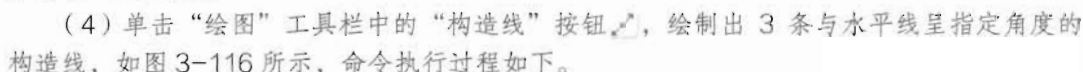 （4）单击“绘图”工具栏中的“构造线”按钮，绘制出 3 条与水平线呈指定角度的
构造线，如图 3-116 所示，命令执行过程如下。